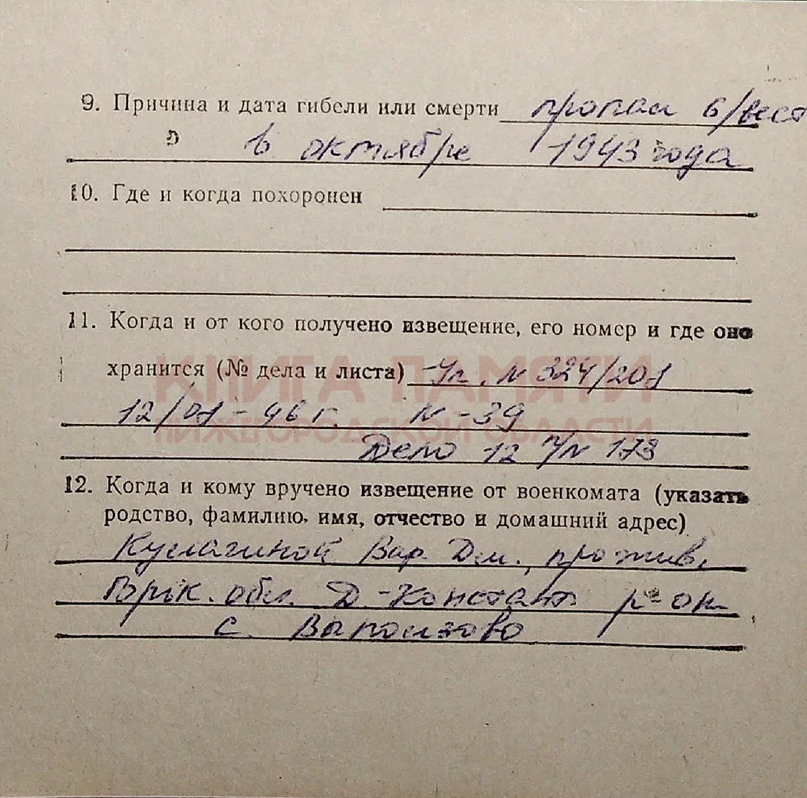 9. Причина и дата гибели или смерти пропал б/вест
в октябре 1943 года
10. Где и когда похоронен
11. Когда и от кого получено извещение, его номер и где оно
хранится (№ дела и листа) Уп. N 324/201
12/01-46 г. N-39
Дело 12 п/N 173
12. Когда и кому вручено извещение от военкомата (указать
родство, фамилию, имя, отчество и домашний адрес)
Кулагиной Вар. Дм., прожив.
Горьк. обл. Д-Констант р-он
с. Выползово
КНИГА ПАМЯТИ
НИЖЕГОРОДСКОЙ ОБЛАСТИ